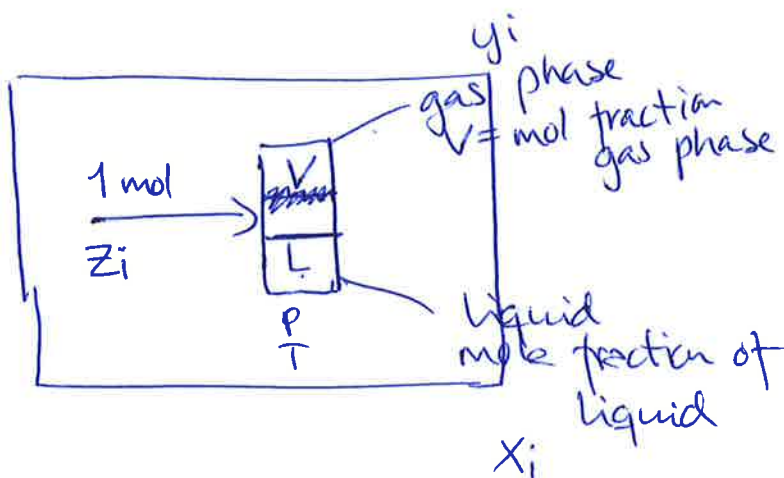 yi
gas phase
V = mol fraction
gas phase
1 mol
Zi
V
L
P
T
Liquid
mole fraction of
Liquid
Xi